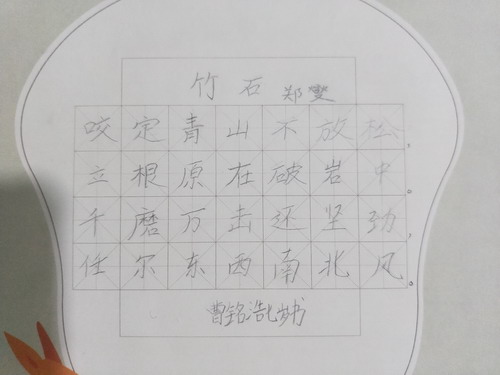 竹石 郑燮
咬定青山不放松，
立根原在破岩中。
千磨万击还坚劲，
任尔东西南北风。
曹铭浩七岁书